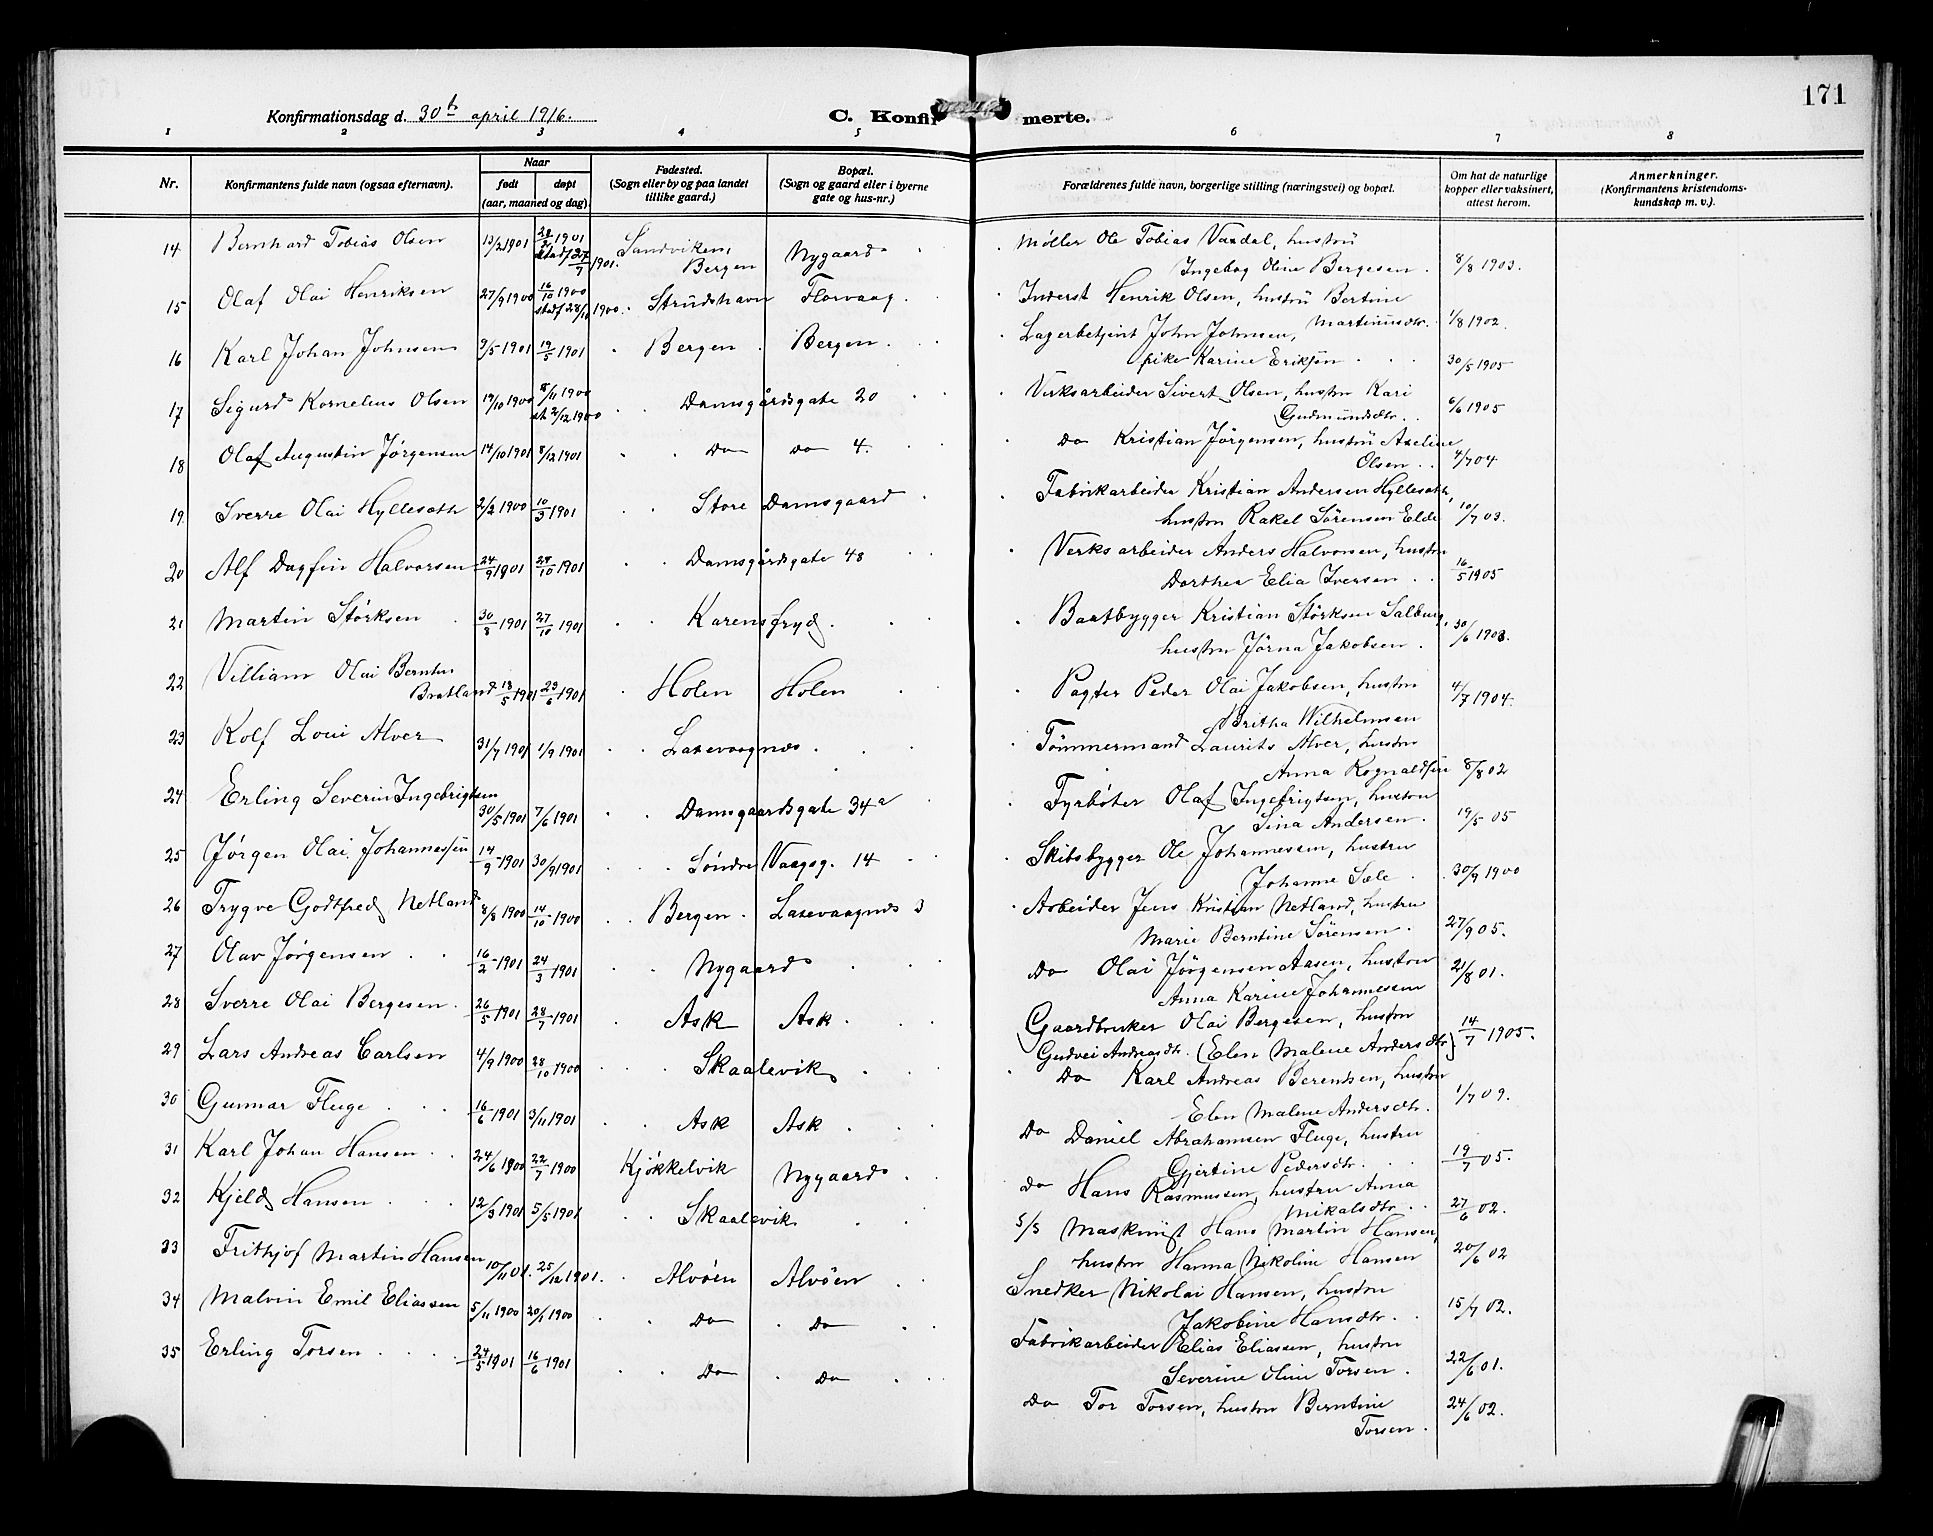 171
Konfirmationsdag d. 30te april 1916.
C. Konfirmerte.
1 2 3 4 5 6 7 8
Nr. Konfirmantens fulde navn (ogsaa efternavn). Naar født døpt (aar, maaned og dag). Fødested. (Sogn eller by og paa landet tillike gaard.) Bopæl. (Sogn og gaard eller i byerne gate og hus-nr.) Forældrenes fulde navn, borgerlige stilling (næringsvei) og bopæl. Om hat de naturlige kopper eller vaksinert, attest herom. Anmerkninger. (Konfirmantens kristendoms-kundskap m. v.).
14 Bernhard Tobias Olsen 13/2 1901 28/2 1901 stadf 27/7 1901. Sandviken, Bergen Nygaard Møller Ole Tobias Vardal, hustru
Ingebog Oline Bergesen. 8/8 1903.
15 Olaf Olai Henriksen 27/9 1900 16/10 1900 stadf 28/11 1900. Strudshavn Florvaag. Inderst Henrik Olsen, hustru Bertine
Martinusdtr. 1/8 1902.
16 Karl Johan Johnsen 9/5 1901 19/5 1901 Bergen. Bergen. Lagerbetjent John Johnsen,
pike Karine Eriksen 30/5 1905
17 Sigurd Kornelius Olsen 19/10 1900 8/11 1900 st 2/12 1900 Damsgårdsgate 20 Verksarbeider Sivert Olsen, hustru Kari
Gudmundsdtr. 6/6 1905
18 Olaf Augustin Jørgensen 14/10 1901 8/12 1901 Do do 4. Do Kristian Jørgensen, hustru Axeline
Olsen 4/7 04
19 Sverre Olai Hyllesøth 2/2 1900 10/3 1901 Store Damsgaard Fabrikarbeider Kristian Andersen Hyllesøth,
hustru Rakel Sørensen Elde 10/7 03.
20 Alf Dagfin Halvorsen 24/9 1901 28/10 1901 Damsgårdsgate 48 Verksarbeider Anders Halvorsen, hustru
Dorthea Elia Iversen 16/5 1905
21 Martin Størksen 30/8 1901 27/10 1901 Karensfryd. Baatbygger Kristian Størksen Salbuog,
hustru Jørna Jakobsen. 30/6 1903.
22 Villiam Olai Berntin
Bratland 18/5 1901 23/6 1901 Holen Holen Pagter Peder Olai Jakobsen, hustru
Britha Wilhelmsen 4/7 1904.
23 Rolf Loui Alver 31/7 1901 1/9 1901 Laxevaagnes. Tömmermand Laurits Alver, hustru
Anna Rognaldsen 8/8 02
24 Erling Severin Ingebrigtsen 30/5 1901 7/6 1901 Damsgaardsgate 34a Fyrbøter Olaf Ingebrigtsen, hustru
Sina Andersen. 19/5 05
25 Jørgen Olai Johannessen 14/9 1901 30/9 1901 Søndre Vaagsg. 14 Skibsbygger Ole Johannessen, hustru
Johanne Sæle 30/9 1900
26 Trygve Godtfred Netland 8/8 1900 14/10 1900 Bergen. Laxevaagnes 3 Arbeider Jens Kristian Netland, hustru
Marie Berntine Sørensen. 27/9 05.
27 Olav Jørgensen 16/2 1901 24/3 1901 Nygaard Do Olai Jørgensen Aasen, hustru
Anna Karine Johannessen 21/8 01.
28 Sverre Olai Bergesen. 26/5 1901 28/7 1901 Ask Ask. Gaardbruker Olai Bergesen, hustru
Gudvei Andreasdtr. (Elen Malene Andersdtr) 14/7 1905.
29 Lars Andreas Carlsen 4/9 1900 28/10 1900 Skaalevik Do Karl Andreas Berentsen, hustru
Elen Malene Andersdtr. 1/7 09.
30 Gunnar Fluge 16/6 1901 3/11 1901 Ask Ask. Do Daniel Abrahamsen Fluge, hustru
Gjertine Pedersdtr. 19/7 05.
31 Karl Johan Hansen 24/6 1900 22/7 1900 Kjøkkelvik Nygaard. Do Hans Rasmussen, hustru Anna
Mikalsdtr. 27/6 02.
32 Kjeld Hansen 12/3 1901 5/5 1901 Skaalevik S/S Maskinist Hans Martin Hansen,
hustru Hanna Nikoline Hansen 20/6 02
33 Frithjof Martin Hansen 10/11 01. 25/12 1901. Alvøen Alvøen Snedker Nikolai Hansen, hustru
Jakobine Hansdtr. 15/7 02.
34 Malvin Emil Eliassen 5/11 1900 20/1 1900 Do Do Fabrikarbeider Elias Eliassen, hustru
Severine Oline Torsen. 22/6 01.
35 Erling Torsen 24/5 1901 16/6 1901 Do Do Do Tor Torsen, hustru Berntine
Torsen. 24/6 02.